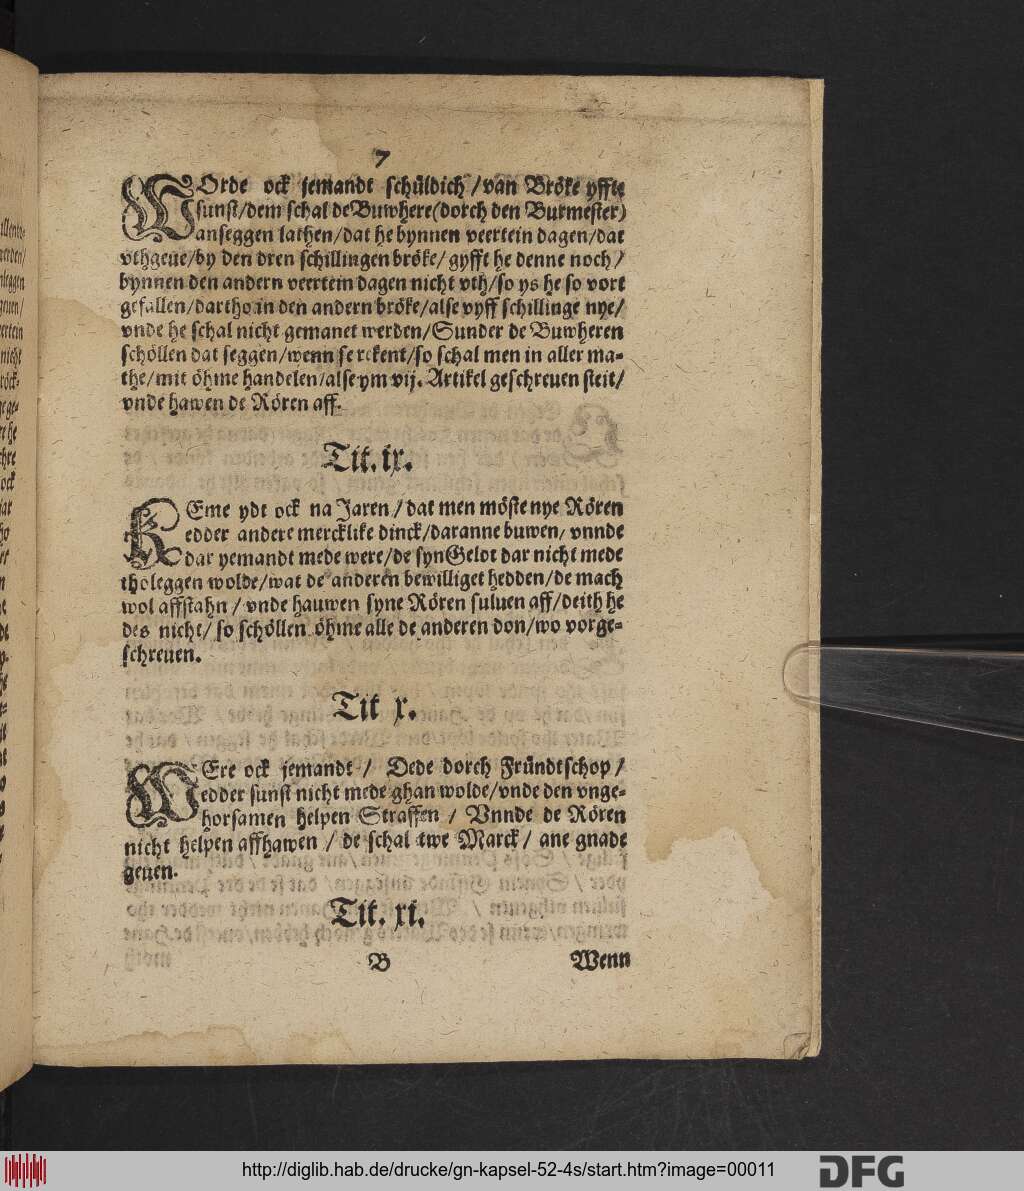 7
WOrde ock jemandt schüldich / van Bröke yffte
sunst/dem schal de Buwhere (dorch den Burmester)
anseggen lathen/dat he bynnen veertein dagen/dat
vthgeue/by den dren schillingen bröke/ gyfft he denne noch/
bynnen den andern veertein dagen nicht vth/so ys he so vort
gefallen/dartho in den andern bröke/alse vyff schillinge nye/
vnde he schal nicht gemanet werden/Sunder de Buwheren
schöllen dat seggen/wenn se rekent/so schal men in aller ma-
the/mit öhme handelen/alse ym vij. Artikel geschreuen steit/
vnde hawen de Rören aff.
Tit. ix.
KEme ydt ock na Jaren / dat men möste nye Rören
edder andere mercklike dinck/daranne buwen/ vnnde
dar yemandt mede were/de syn Gelot dar nicht mede
tholeggen wolde/wat de anderen bewilliget hedden/de mach
wol affstahn / vnde hauwen syne Rören suluen aff/deith he
des nicht/ so schöllen öhme alle de anderen don/wo vorge-
schreuen.
Tit x.
WEre ock jemandt / Dede dorch Fründtschop /
edder sunst nicht mede ghan wolde/vnde den vnge-
horsamen helpen Straffen / Vnnde de Rören
nicht helpen affhawen / de schal twe Marck / ane gnade
geuen.
Tit. xi.
B Wenn
nicht
ock
http://diglib.hab.de/drucke/gn-kapsel-52-4s/start.htm?image=00011
DFG